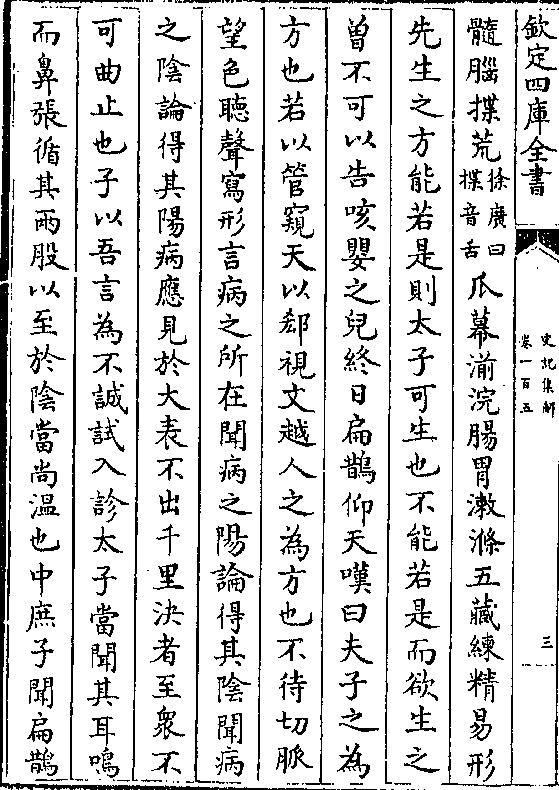 欽定四庫全書
史記集解
卷一百五
三
髓腦揲荒徐廣曰揲音舌爪幕湔浣腸胃漱滌五藏練精易形
先生之方能若是則太子可生也不能若是而欲生之
曽不可以告咳嬰之兒終日扁鵲仰天嘆曰夫子之為
方也若以管窺天以郄視文越人之為方也不待切脈
望色聽聲寫形言病之所在聞病之陽論得其陰聞病
之陰論得其陽病應見於大表不出千里決者至衆不
可曲止也子以吾言為不誠試入診太子當聞其耳鳴
而鼻張循其兩股以至於陰當尚溫也中庶子聞扁鵲